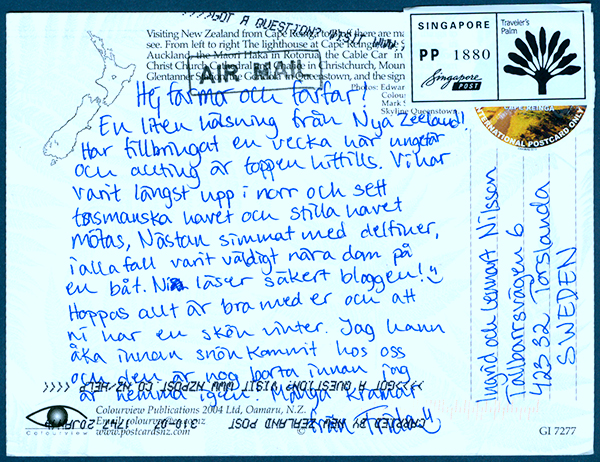 >>>>GOT A QUESTION? VISIT WWW.
Visiting New Zealand from Cape Reinga to there are
see. From left to right The lighthouse at Cape Reinga the
Auckland, the Maori Haka in Rotorua the Cable Car in
Christ Church Cathedral in Christchurch, Moun
Glentanner in Queenstown, and the sign
Photos: Edwar
Colou
Mark
Skyline Queenstown
AIR MAIL
SINGAPORE
PP 1880
Singapore
POST
Traveler's
Palm
CAPE REINGA
INTERNATIONAL POSTCARD ONLY
Hej farmor och farfar!
En liten hälsning från Nya Zeeland!
Har tillbringat en vecka här ungefär
och allting är toppen hittills. Vi har
varit längst upp i norr och sett
tasmanska havet och stilla havet
mötas. Nästan simmat med delfiner,
iallafall varit väldigt nära dom på
en båt. Ni läser säkert bloggen!
Hoppas allt är bra med er och att
ni har en skön vinter. Jag hann
åka innan snön kommit hos oss
och den är nog borta innan jag
är hemma igen! Många kramar
från Frida
Ingrid och Lennart Nilsson
Tallbarrsvägen 6
423 32 Torslanda
SWEDEN
>>>GOT A QUESTION? VISIT WWW.NZPOST.CO.NZ/HELP
CARRIED BY NEW ZEALAND POST 3.10.07
Colourview
Colourview Publications 2004 Ltd, Oamaru, N.Z.
www.postcardsnz.com
GI 7277